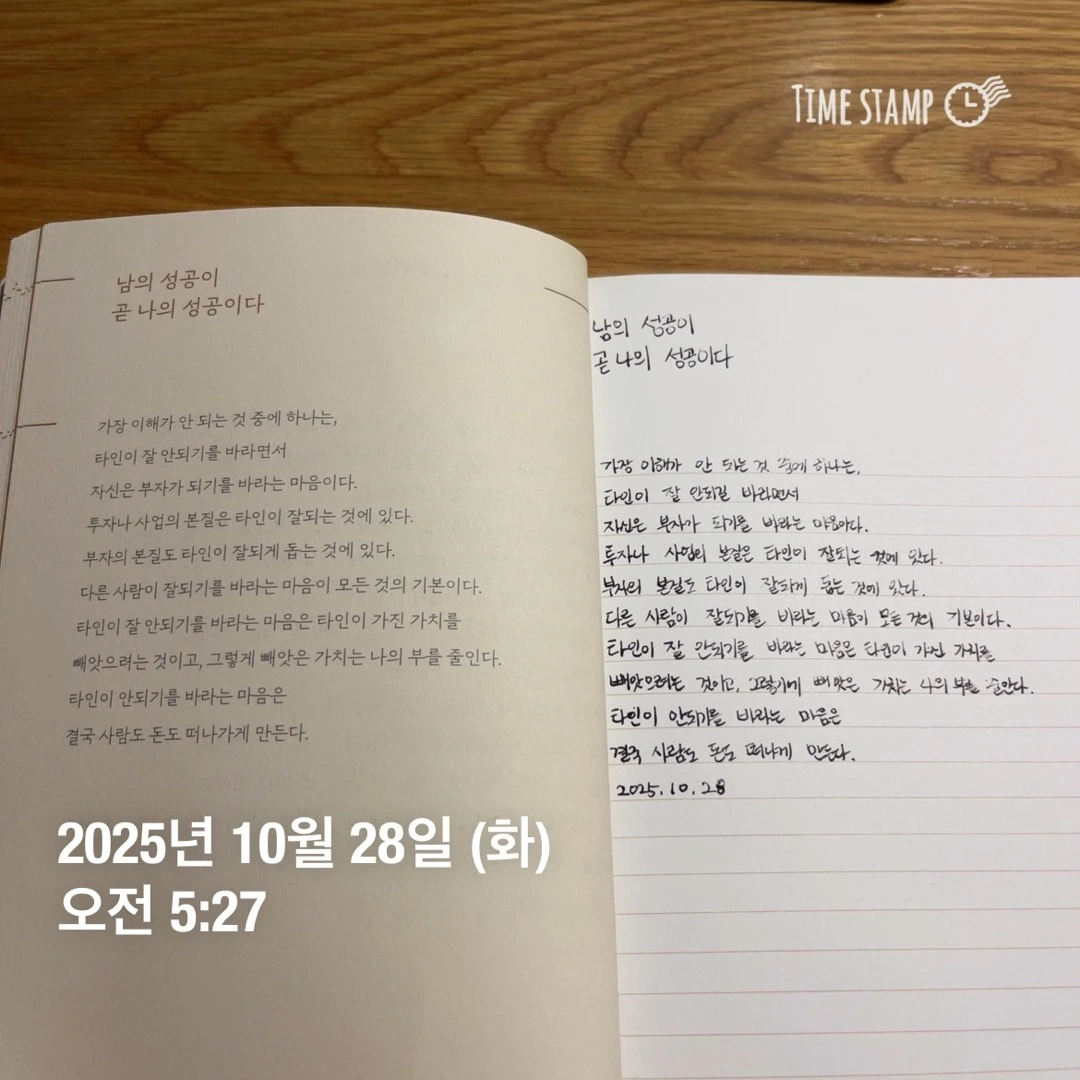 TIME STAMP
남의 성공이
곧 나의 성공이다
가장 이해가 안 되는 것 중에 하나는,
타인이 잘 안되기를 바라면서
자신은 부자가 되기를 바라는 마음이다.
투자나 사업의 본질은 타인이 잘되는 것에 있다.
부자의 본질도 타인이 잘되게 돕는 것에 있다.
다른 사람이 잘되기를 바라는 마음이 모든 것의 기본이다.
타인이 잘 안되기를 바라는 마음은 타인이 가진 가치를
빼앗으려는 것이고, 그렇게 빼앗은 가치는 나의 부를 줄인다.
타인이 안되기를 바라는 마음은
결국 사람도 돈도 떠나가게 만든다.
남의 성공이
곧 나의 성공이다
가장 이해가 안 되는 것 중에 하나는,
타인이 잘 안되길 바라면서
자신은 부자가 되기를 바라는 마음이다.
투자나 사업의 본질은 타인이 잘되는 것에 있다.
부자의 본질도 타인이 잘되게 돕는 것에 있다.
다른 사람이 잘되기를 바라는 마음이 모든 것의 기본이다.
타인이 잘 안되기를 바라는 마음은 타인이 가진 가치를
빼앗으려는 것이고, 그렇게 빼앗은 가치는 나의 부를 줄인다.
타인이 안되기를 바라는 마음은
결국 사람도 돈도 떠나게 만든다.
2025.10.28
2025년 10월 28일 (화)
오전 5:27